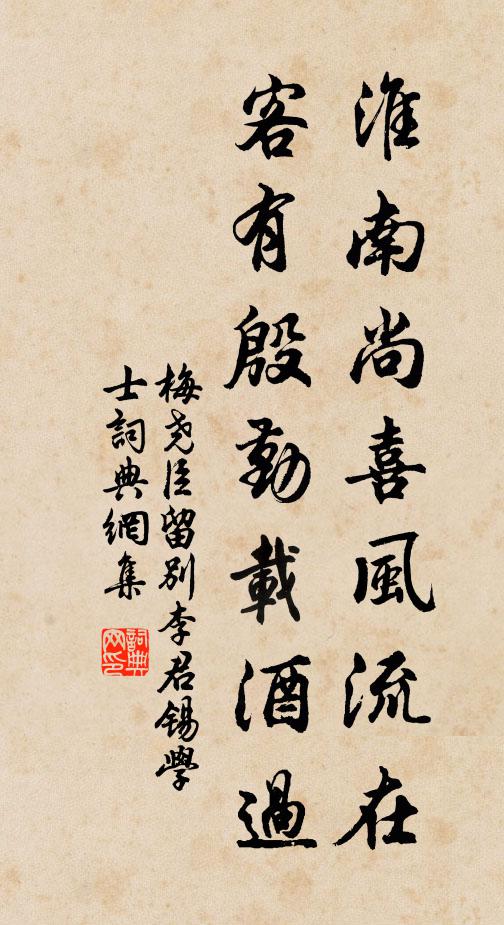 淮南尚喜風流在
客有殷勤載酒過
梅尧臣留别李君錫學
士詞典網集
詞典网印